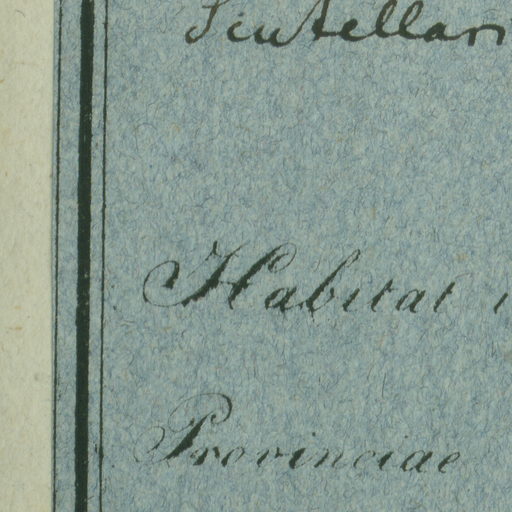 Scutellari
Habitat i
Provinciae